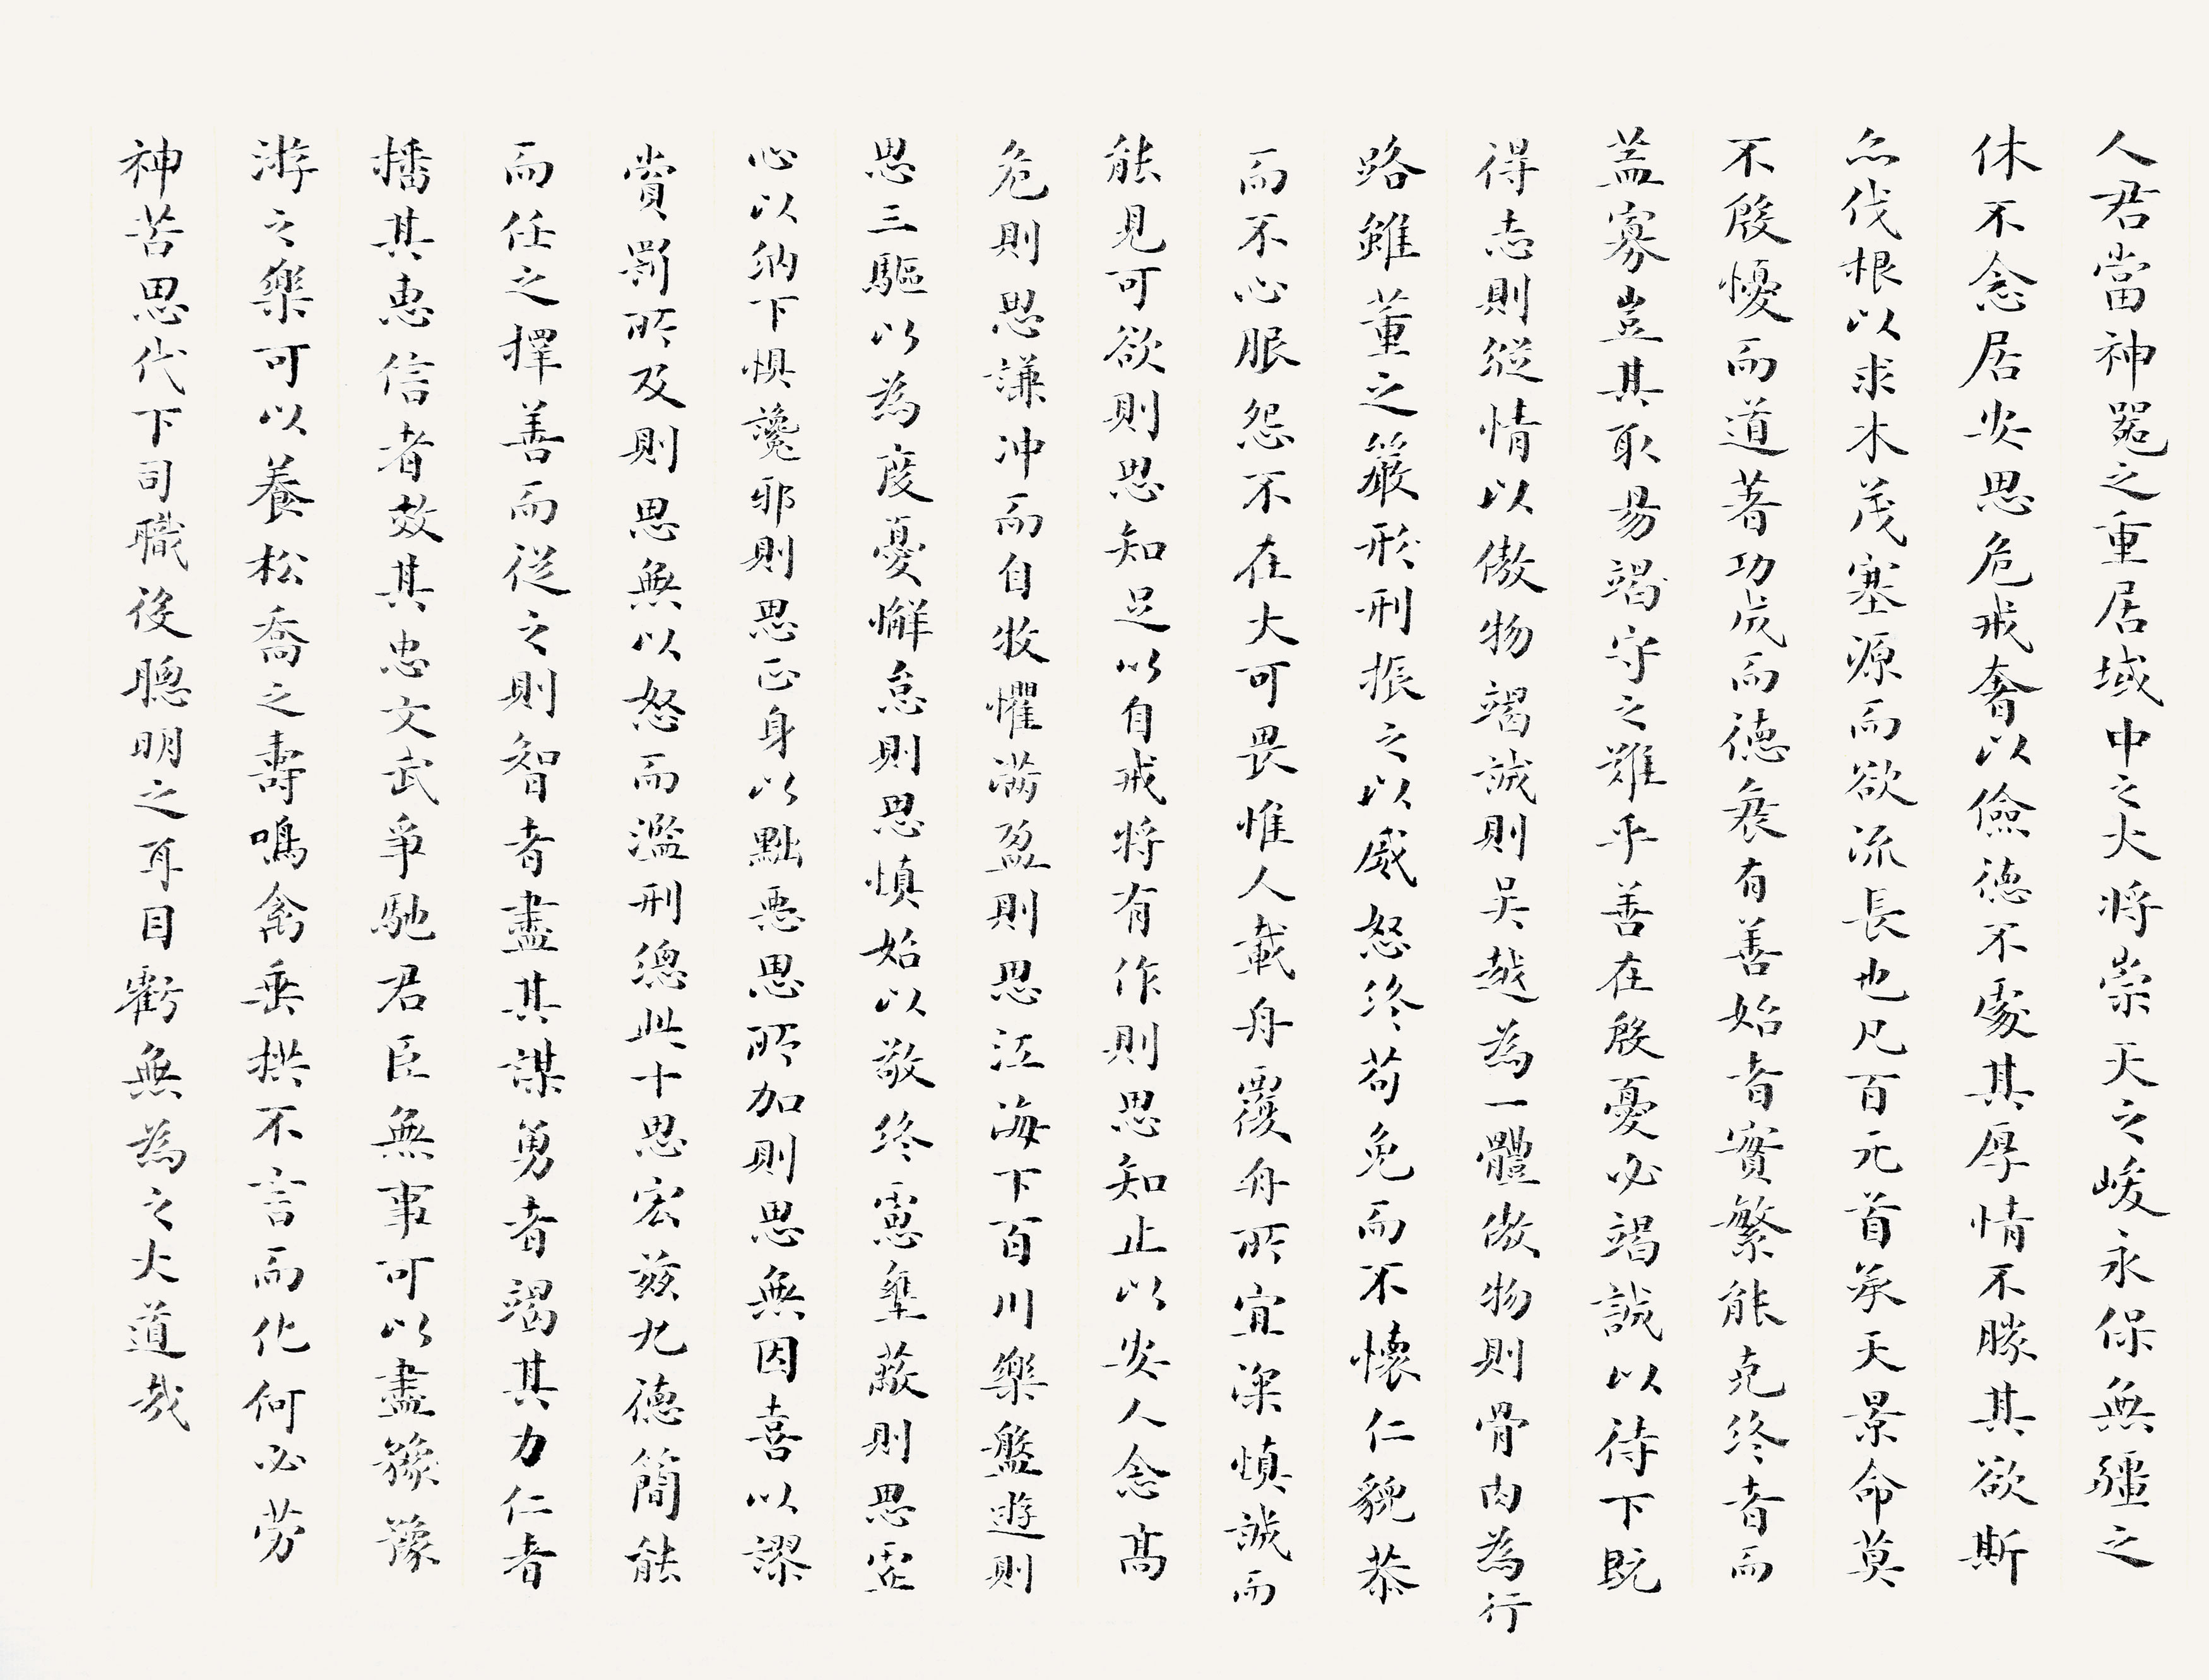 人君當神器之重居域中之大將崇天之峻永保無疆之
休不念居安思危戒奢以儉德不處其厚情不勝其欲斯
亦伐根以求木茂塞源而欲流長也凡百元首承天景命莫
不殷憂而道著功成而德衰有善始者實繁能克終者而
蓋寡豈其取易竭守之難乎善在殷憂必竭誠以待下既
得志則縱情以傲物竭誠則吴越為一體傲物則骨肉為行
路雖董之嚴形刑振之以威怒終苟免而不懷仁貌恭
而不心服怨不在大可畏惟人載舟覆舟所宜深慎誠而
能見可欲則思知足以自戒將有作則思知止以安人念高
危則思謙沖而自牧懼滿盈則思江海下百川樂盤遊則
思三驅以為度憂懈怠則思慎始以敬終慮壅蔽則思虛
心以納下懼讒邪則思正身以黜惡思所加則思無因喜以謬
賞罰所及則思無以怒而濫刑總此十思宏茲九德簡能
而任之擇善而從之則智者盡其謀勇者竭其力仁者
播其惠信者效其忠文武爭馳君臣無事可以盡豫豫
游之樂可以養松喬之壽鳴禽垂拱不言而化何必勞
神苦思代下司職役聰明之耳目虧無為之大道哉